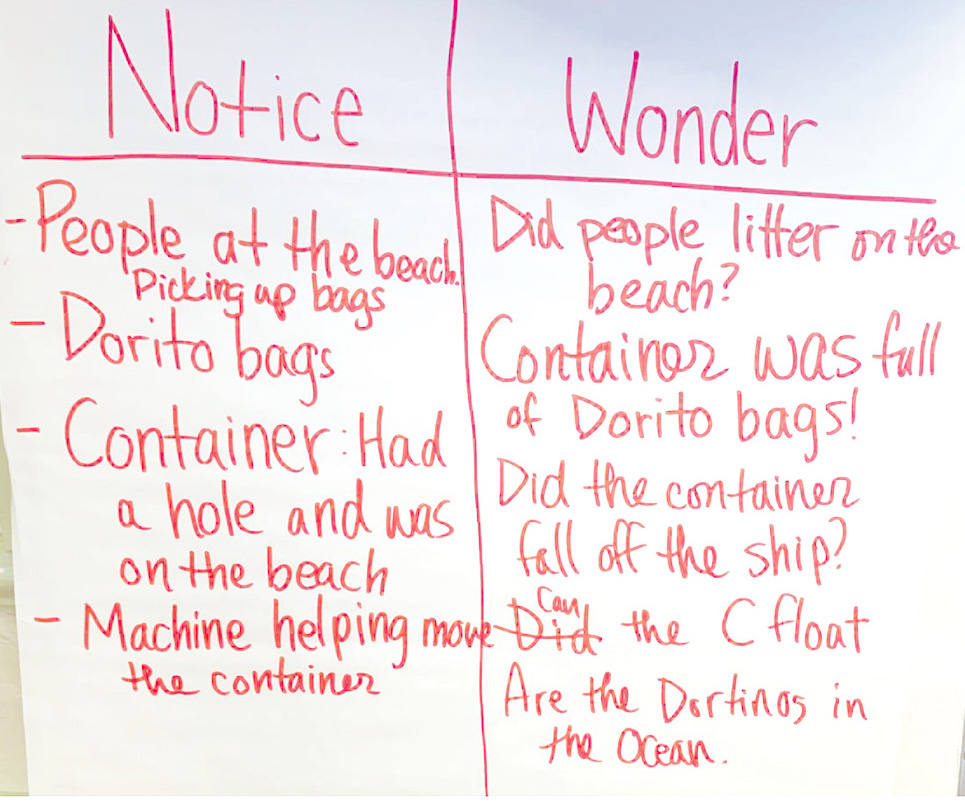 Notice
- People at the beach.
Picking up bags
- Dorito bags
- Container: Had
a hole and was
on the beach
- Machine helping move
the container
Wonder
Did people litter on the
beach?
Container was full
of Dorito bags!
Did the container
fall off the ship?
Can
Did the C float
Are the Dortinos in
the Ocean.